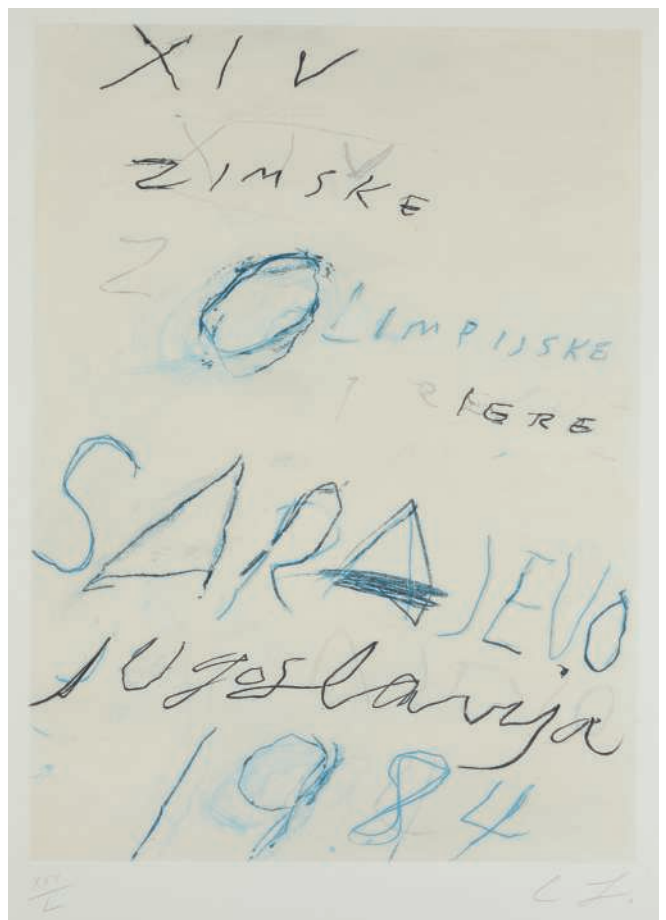 XIV
ZIMSKE
OLIMPIJSKE
IERE
SARAJEVO
Jugoslavija
1984